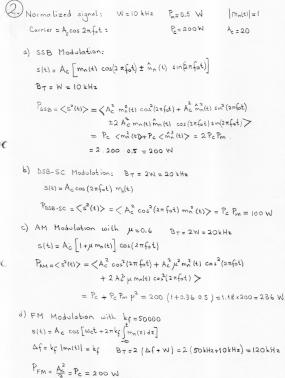 2. Normalized signal: W=10 kHz Pm=0.5 W |mn(t)|=1
Carrier = Ac cos 2πfct : Pc=200 W Ac=20
a) SSB Modulation:
s(t) = Ac [mn(t) cos(2πfct) ± m̂n(t) sin(2πfct)]
BT = W = 10 kHz
PSSB = <s²(t)> = <Ac² mn²(t) cos²(2πfct) + Ac² m̂n²(t) sin²(2πfct)
±2 Ac² mn(t) m̂n(t) cos(2πfct) sin(2πfct)>
= Pc <mn²(t)> + Pc <m̂n²(t)> = 2 Pc Pm
= 2 . 200 . 0.5 = 200 W
b) DSB-SC Modulation: BT = 2W = 20 kHz
s(t) = Ac cos(2πfct) mn(t)
PDSB-SC = <s²(t)> = <Ac² cos²(2πfct) mn²(t)> = Pc Pm = 100 W
c) AM Modulation with μ=0.6 BT = 2W = 20 kHz
s(t) = Ac [1+μ mn(t)] cos(2πfct)
PAM = <s²(t)> = <Ac² cos²(2πfct) + Ac² μ² mn²(t) cos²(2πfct)
+ 2 Ac² μ mn(t) cos²(2πfct)>
= Pc + Pc Pm μ² = 200 (1+0.36 0.5) = 1.18×200 = 236 W
d) FM Modulation with kf = 50000
s(t) = Ac cos[ωct + 2πkf ∫ mn(τ) dτ]
Δf = kf |mn(t)| = kf BT = 2 (Δf + W) = 2 (50kHz+10kHz) = 120 kHz
PFM = Ac²/2 = Pc = 200 W